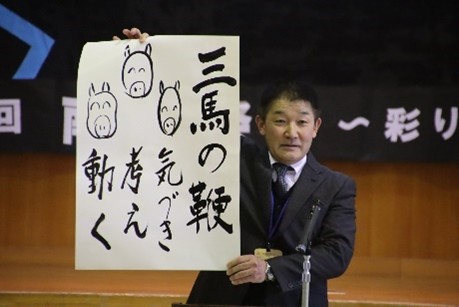 三馬の鞭
気づき
考え
動く
回
～彩り